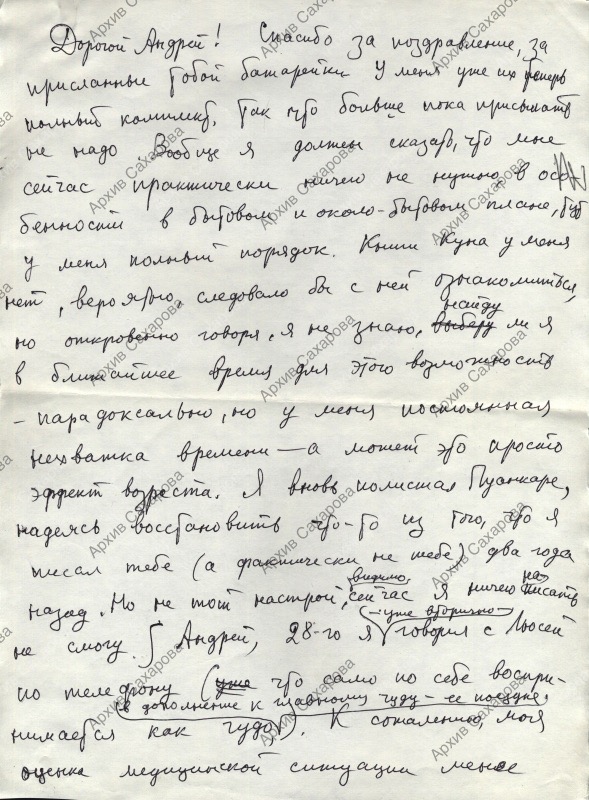 Дорогой Андрей! Спасибо за поздравление, за
присланные тобой батарейки. У меня уже их теперь
полный комплект, так что больше пока присылать
не надо. Вообще я должен сказать, что мне
сейчас практически ничего не нужно, в осо-
бенности в бытовом и около-бытовом плане, тут
у меня полный порядок. Книги Куна у меня
нет, вероятно, следовало бы с ней ознакомиться,
найду
но откровенно говоря, я не знаю, выберу ли я
в ближайшее время для этого возможность
- парадоксально, но у меня постоянная
нехватка времени — а может это просто
эффект возраста. Я вновь полистал Пуанкаре,
надеясь восстановить что-то из того, что я
писал тебе (а фактически не тебе) два года
видимо, на-
назад. Но не тот настрой, сейчас я ничего писать
- уже вторично -
не смогу. ∫ Андрей, 28-го я говорил с Люсей
по телефону (уже что само по себе воспри-
в дополнение к главному чуду - ее поездке
нимается как чудо). К сожалению, моя
оценка медицинской ситуации менее
Архив Сахарова